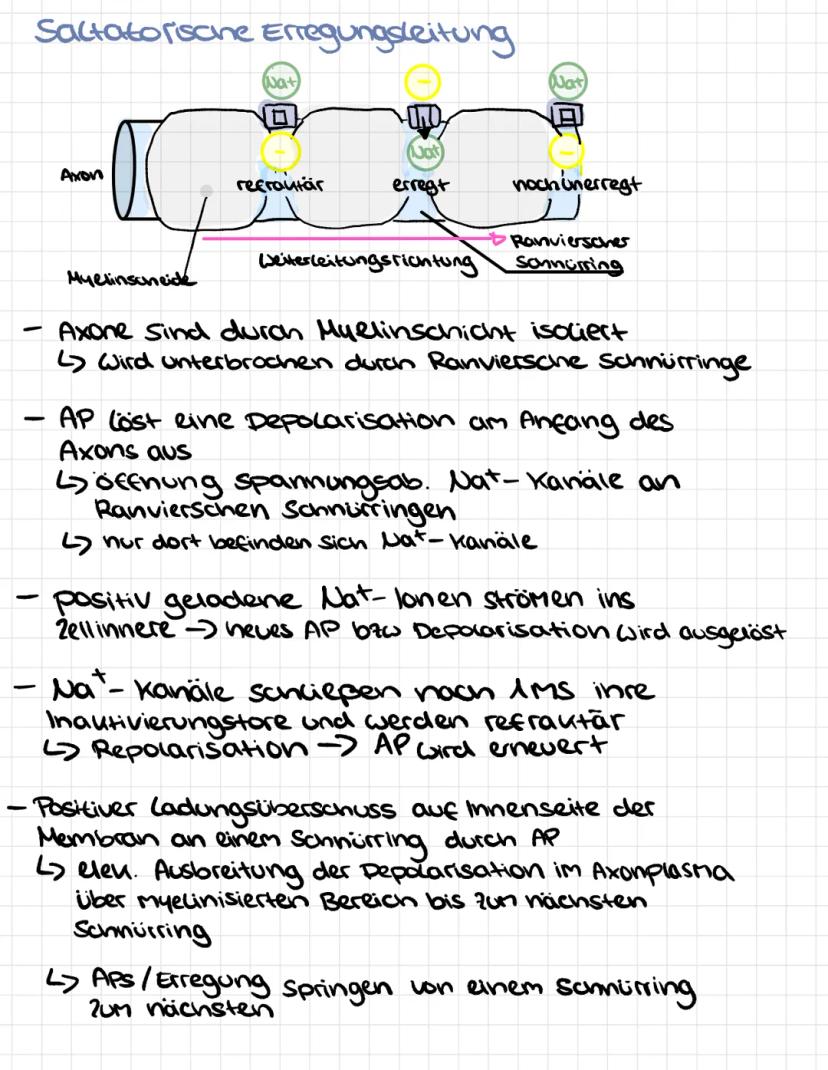 Saltatorische Erregungsleitung
Na+ - Na+
Axon
- Na+ -
refraktär erregt noch unerregt
Ranvierscher
Weiterleitungsrichtung Schnürring
Myelinscheide
- Axone sind durch Myelinschicht isoliert
↳ Wird unterbrochen durch Ranviersche Schnürringe
- AP löst eine Depolarisation am Anfang des
Axons aus
↳ öffnung spannungsab. Na+- Kanäle an
Ranvierschen Schnürringen
↳ nur dort befinden sich Na+- Kanäle
- positiv geladene Na+- Ionen strömen ins
Zellinnere → neues AP bzw Depolarisation wird ausgelöst
- Na+- Kanäle schließen nach 1ms ihre
Inaktivierungstore und werden refraktär
↳ Repolarisation → AP wird erneuert
- Positiver Ladungsüberschuss auf Innenseite der
Membran an einem Schnürring durch AP
↳ elek. Ausbreitung der Depolarisation im Axonplasma
über myelinisierten Bereich bis zum nächsten
Schnürring
↳ APs / Erregung springen von einem Schnürring
zum nächsten